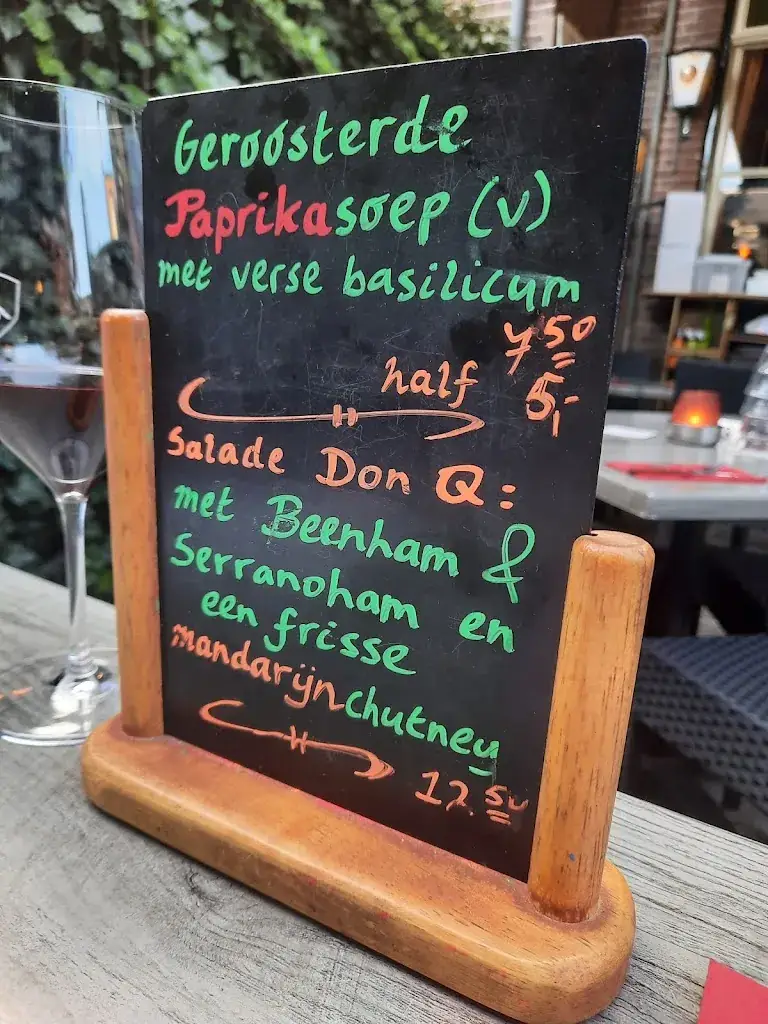 Geroosterde
Paprikasoep (v)
met verse basilicum
7 50
half 5,-
Salade Don Q:
met Beenham &
Serranoham en
een frisse
mandarijnchutney
12 50